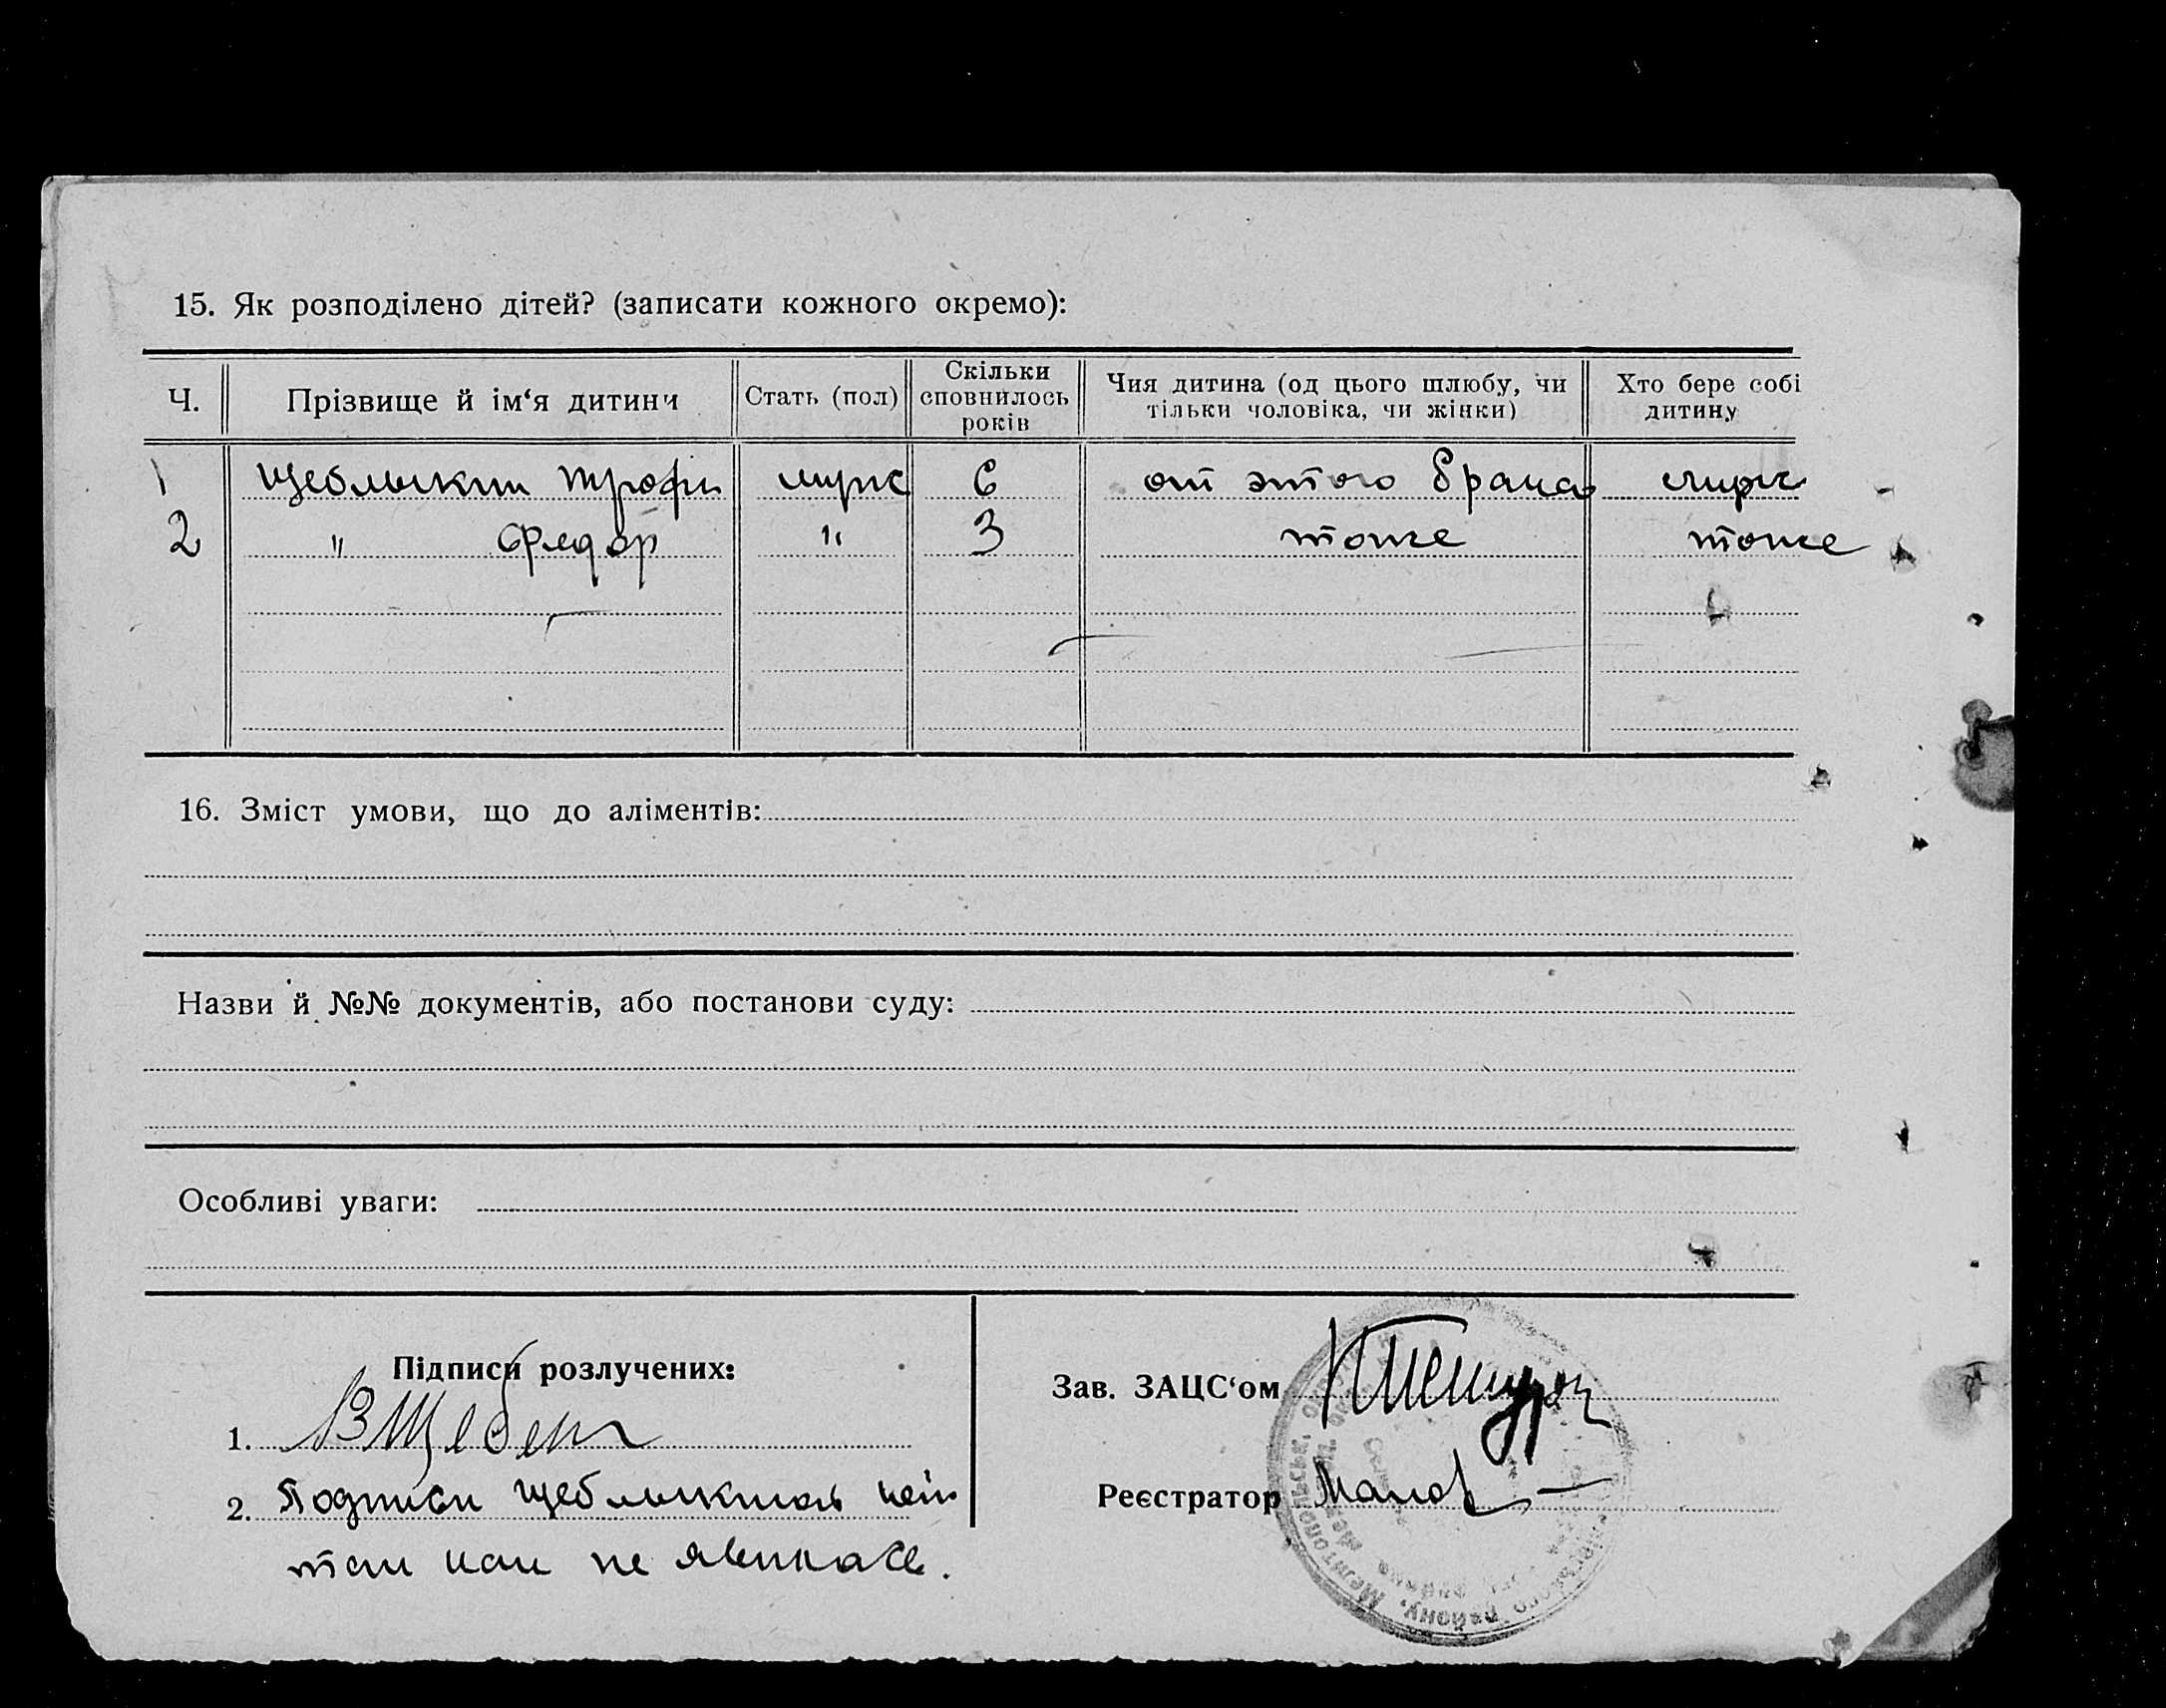 15. Як розподілено дітей? (записати кожного окремо):
Ч. Прізвище й ім‘я дитини Стать (пол) Скільки сповнилось років Чия дитина (од цього шлюбу, чи тільки чоловіка, чи жінки) Хто бере собі дитину
1 Щеблыкин Трофи муж 6 от этого брака
2 " Федор " 3 тоже тоже
16. Зміст умови, що до аліментів:
Назви й №№ документів, або постанови суду:
Особливі уваги:
Підписи розлучених:
1. ВЩебл
2. Подписи Щеблыкиной нет
так как не явилась.
Зав. ЗАЦС‘ом
Реєстратор
району. Мелітопольськ.